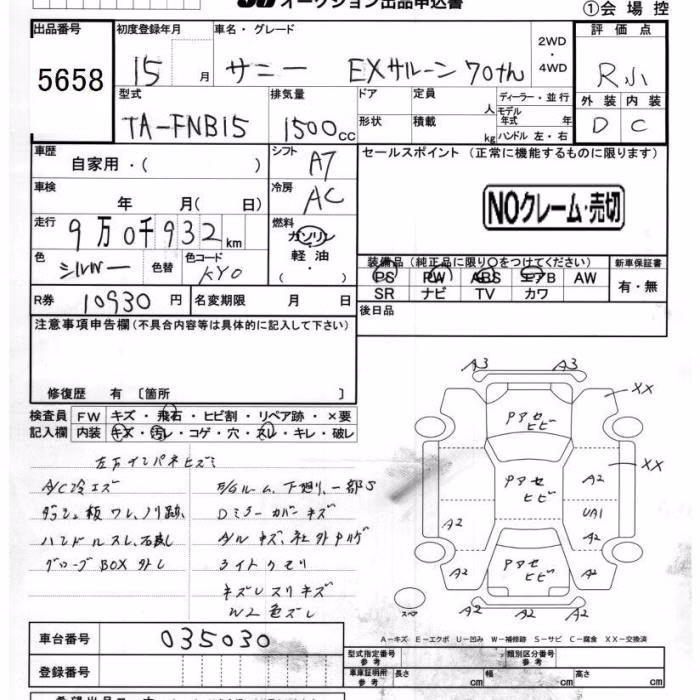 オークション出品申込書
①会場控
出品番号 初度登録年月 車名・グレード 2WD・4WD 評価点
5658 15 月 サニー EXサルーン 70th R小
型式 排気量 ドア 定員 人 ディーラー・並行 外装 内装
TA-FNB15 1500cc 形状 積載 kg モデル年式 年 ハンドル 左・右 D C
車歴 自家用・( ) シフト A7 セールスポイント (正常に機能するものに限ります)
車検 年 月( 日) 冷房 AC
NOクレーム・売切
走行 9万0千932km 燃料 ガソリン・軽油 ( ・ )
色 シルバー 色替 色コード KY0
装備品(純正品に限り○をつけてください) 新車保証書
PS PW ABS エアB AW 有・無
SR ナビ TV カワ
R券 10930円 名変期限 月 日
後日品
注意事項申告欄(不具合内容等は具体的に記入して下さい)
修復歴 有 〔箇所 〕
検査員 FW キズ・飛石・ヒビ割・リペア跡・×要
記入欄 内装 キズ・汚レ・コゲ・穴・スレ・キレ・破レ
左右インパネヒズミ
A/C冷エズ
E/Gルーム、下廻り、一部S
ダッシュ板ワレ、ノリ跡、
Dミラーカバーキズ
ハンドルスレ、
グローブBOX外し
ライトクモリ
ネズレスリキズ
色ズレ
A3 A3
Pアセヒビ
XX
XX
Pアセヒビ
A2
A2
UA1
Pアセヒビ
A2
A2 A2
A2 A2 A2
スペア
A-キズ E-エクボ U-凹み W-補修跡 S-サビ C-腐食 XX-交換済
車台番号 035030
型式指定番号 参考 類別区分番号 参考
登録番号
車庫証明用 参考 長さ cm 幅 cm 高さ cm
希望出品コーナー